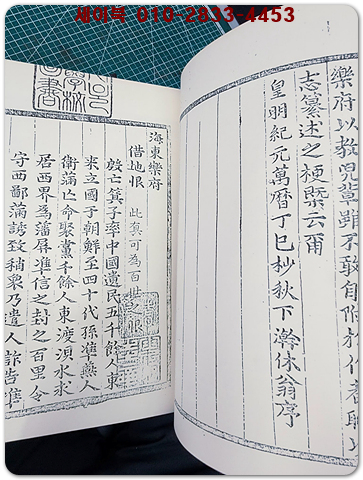 세이북 010-2833-4453
樂府以教兒輩雖不敢自附於作者取
志纂述之梗槩云爾
皇明紀元萬曆丁巳杪秋下澣休翁序
海東樂府
借地恨 此真可為百世之恨
殷亡箕子率中國遺民五千餘人東
來立國于朝鮮至四十代孫準燕人
衛滿亡命聚黨千餘人東渡浿水求
居西界為藩屏準信之封之百里令
守西鄙滿誘致稍衆乃遣人詐告準